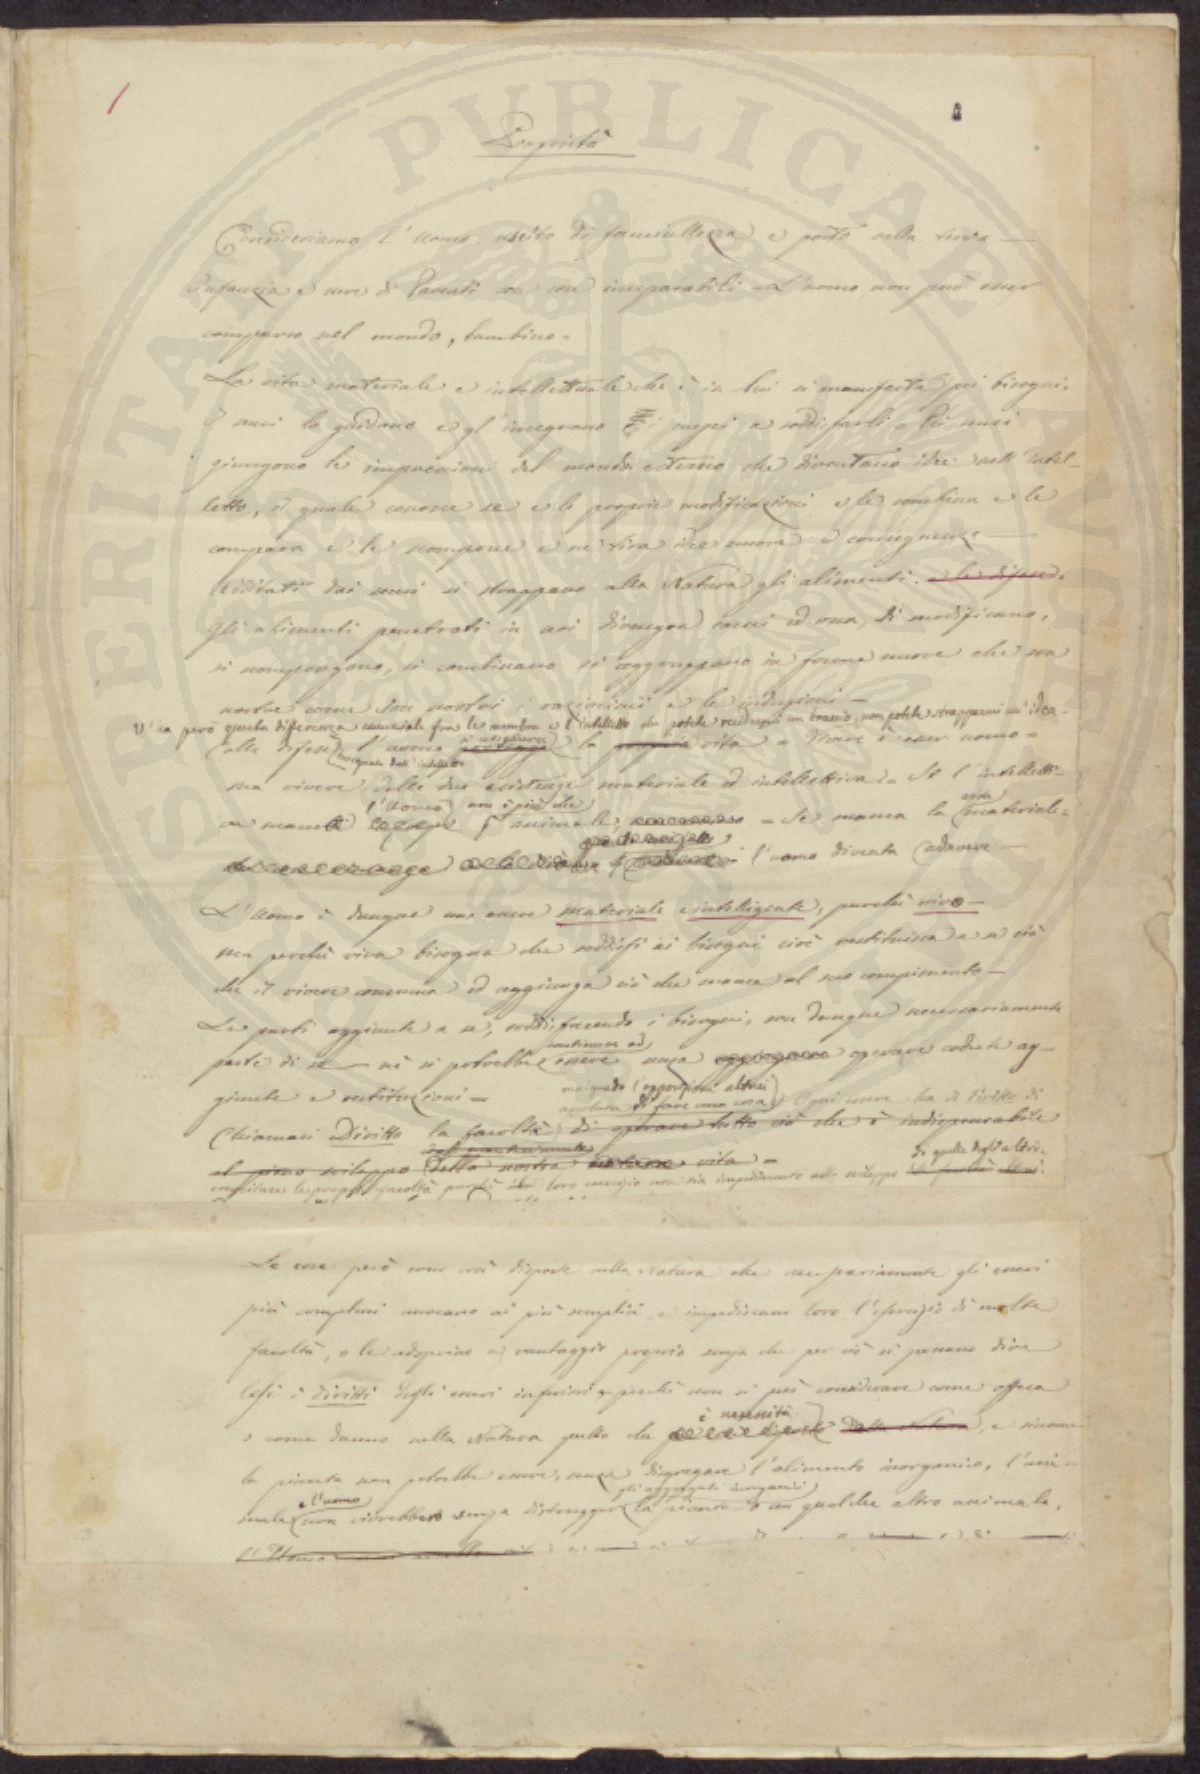 Proprietà
Consideriamo l'uomo uscito di fanciullezza e posto nella terra —
Infanzia e cure di Parenti son cose inseparabili - L'uomo non può esser
comparso nel mondo, bambino -
La vita materiale e intellettuale che è in lui si manifesta pei bisogni.
I sensi lo guidano e gl'insegnano i mezzi a soddisfarli - Pei sensi
giungono le impressioni del mondo esterno che diventano idee nell'intel-
letto, il quale conosce se e le proprie modificazioni e le combina e le
compara e le scompone e ne tira idee nuove e conseguenze —
dai sensi si strappano alla Natura gli alimenti. e le difese.
Gli alimenti penetrati in noi divengon carni ed ossa, si modificano,
si scompongono, si combinano si aggruppano in forme nuove che son
nostre come son nostri i raziocinii e le induzioni —
V'ha però questa differenza essenziale fra le membra e l'intelletto che potete recidermi un braccio, non potete strapparmi un'idea -
alle difese l'uomo la propria vita - Vivere è esser uomo -
insegnate dall'intelletto
ma vivere delle due esistenze materiale ed intellettiva - Se l'intelletti-
l'uomo non è più che vita
va manca animale - Se manca la materiale -
l'uomo diventa cadavere —
L'Uomo è dunque un essere materiale e intelligente, purché vivo —
ma perché viva bisogna che soddisfi ai bisogni cioè restituisca a se ciò
che il vivere consuma ed aggiunga ciò che manca al suo compimento —
Le parti aggiunte a se, soddisfacendo i bisogni, son dunque necessariamente
continuare ad
parte di se — nè si potrebbe essere senza operare codeste ag-
giunte e restituzioni —
malgrado l'opposizione altrui
di fare una cosa Ogni essere ha il diritto di
Chiamasi Diritto la facoltà di operare tutto ciò che è indispensabile
al pieno sviluppo della nostra vita -
di quelle degli altri.
esercitare le proprie facoltà purché loro esercizio non sia impedimento allo sviluppo
Le cose però sono così disposte nella Natura che necessariamente gli esseri
più complessi nuocano ai più semplici, e impediscano loro l'esercizio di molte
facoltà, o le adoprino a vantaggio proprio senza che per ciò si possano dire
lesi i diritti degli esseri inferiori perché non si può considerare come offesa
è necessità
o come danno nella Natura quello che dalla Natura, e siccome
la pianta non potrebbe essere, senza disgregare l'alimento inorganico, l'ani-
e l'uomo gli aggregati inorganici
male non vivrebbero senza distruggere la pianta o un qualche altro animale,
L'Uomo